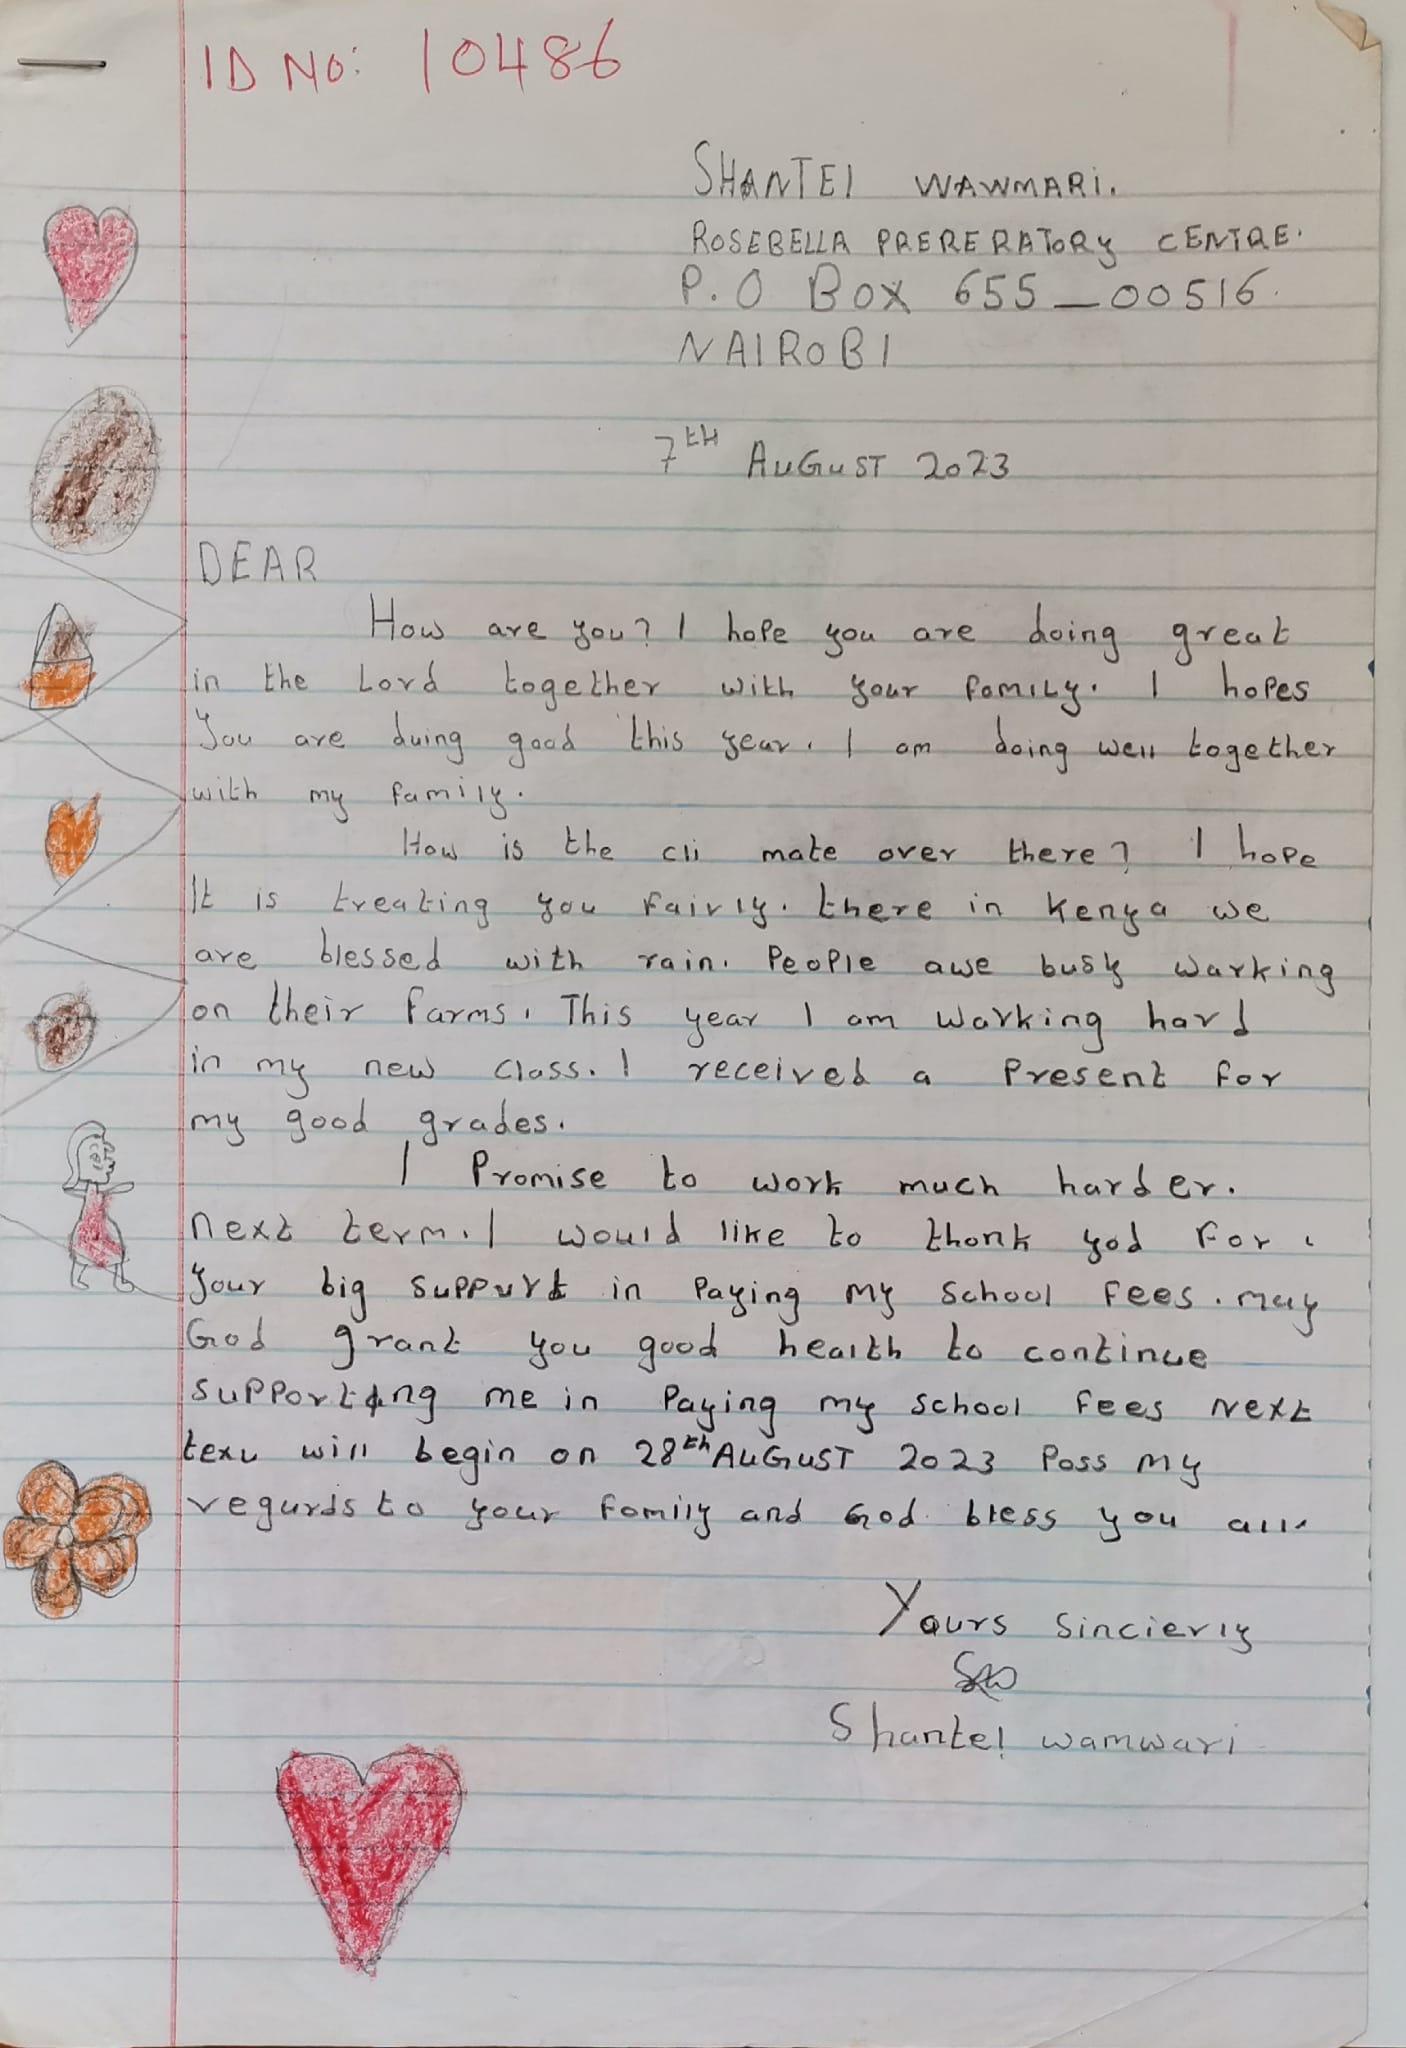 ID NO: 10486
SHANTEl WAWMARI.
ROSEBELLA PRERERATORY CENTRE.
P.O BOX 655_00516.
NAIROBI
7th AUGUST 2023
DEAR
How are you? I hope you are doing great
in the Lord together with your family. I hopes
You are duing good this year. I am doing well together
with my family.
How is the cli mate over there? I hope
It is treating you fairly. there in kenya we
are blessed with rain. People awe busy warking
on their farms. This year I am warking hard
in my new class. I received a Present for
my good grades.
I Promise to work much harder.
next term. I would like to thonk yod for
your big suppurt in Paying my school fees. may
God grant you good health to continue
supporting me in Paying my school fees Next
texu will begin on 28th AUGUST 2023 Poss my
regurds to your fomily and God bless you all.
Yours sincierly
SW
Shantel wamwari